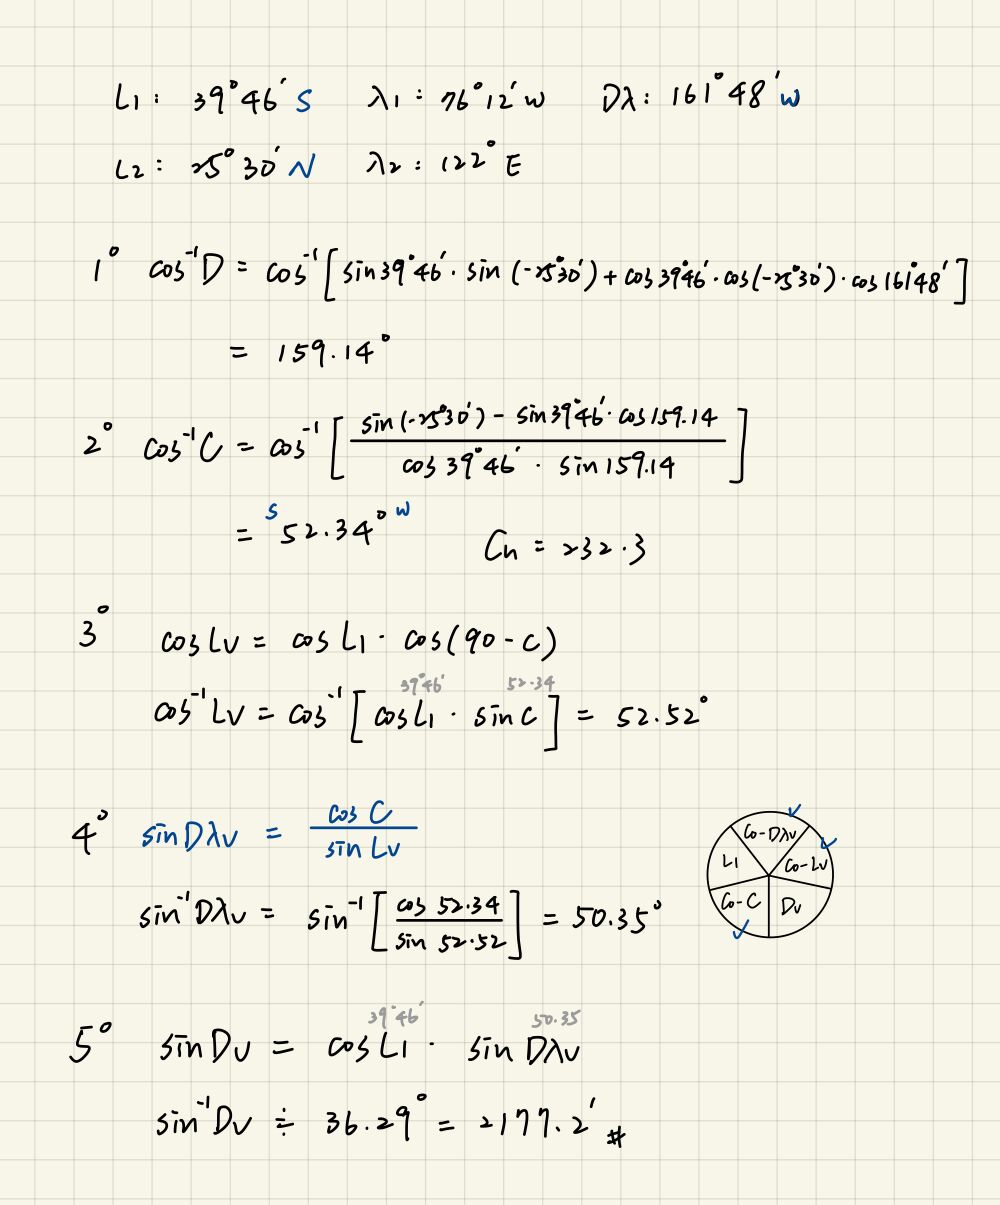 L1 : 39°46′ S λ1 : 76°12′ W Dλ : 161°48′ W
L2 : 25°30′ N λ2 : 122° E
1° cos⁻¹D = cos⁻¹[sin39°46′ · sin (-25°30′) + cos39°46′ · cos(-25°30′) · cos161°48′]
= 159.14°
2° cos⁻¹C = cos⁻¹[(sin(-25°30′) - sin39°46′ · cos159.14) / (cos39°46′ · sin159.14)]
= S 52.34° W Cn = 232.3
3° cos Lv = cos L1 · cos(90 - C)
39°46′ 52.34
cos⁻¹Lv = cos⁻¹[cos L1 · sin C] = 52.52°
4° sinDλv = cos C / sin Lv
sin⁻¹Dλv = sin⁻¹[cos 52.34 / sin 52.52] = 50.35°
Co-Dλv
L1 Co-Lv
Co-C Dv
39°46′ 50.35
5° sinDv = cos L1 · sin Dλv
sin⁻¹Dv ≑ 36.29° = 2177.2′ #